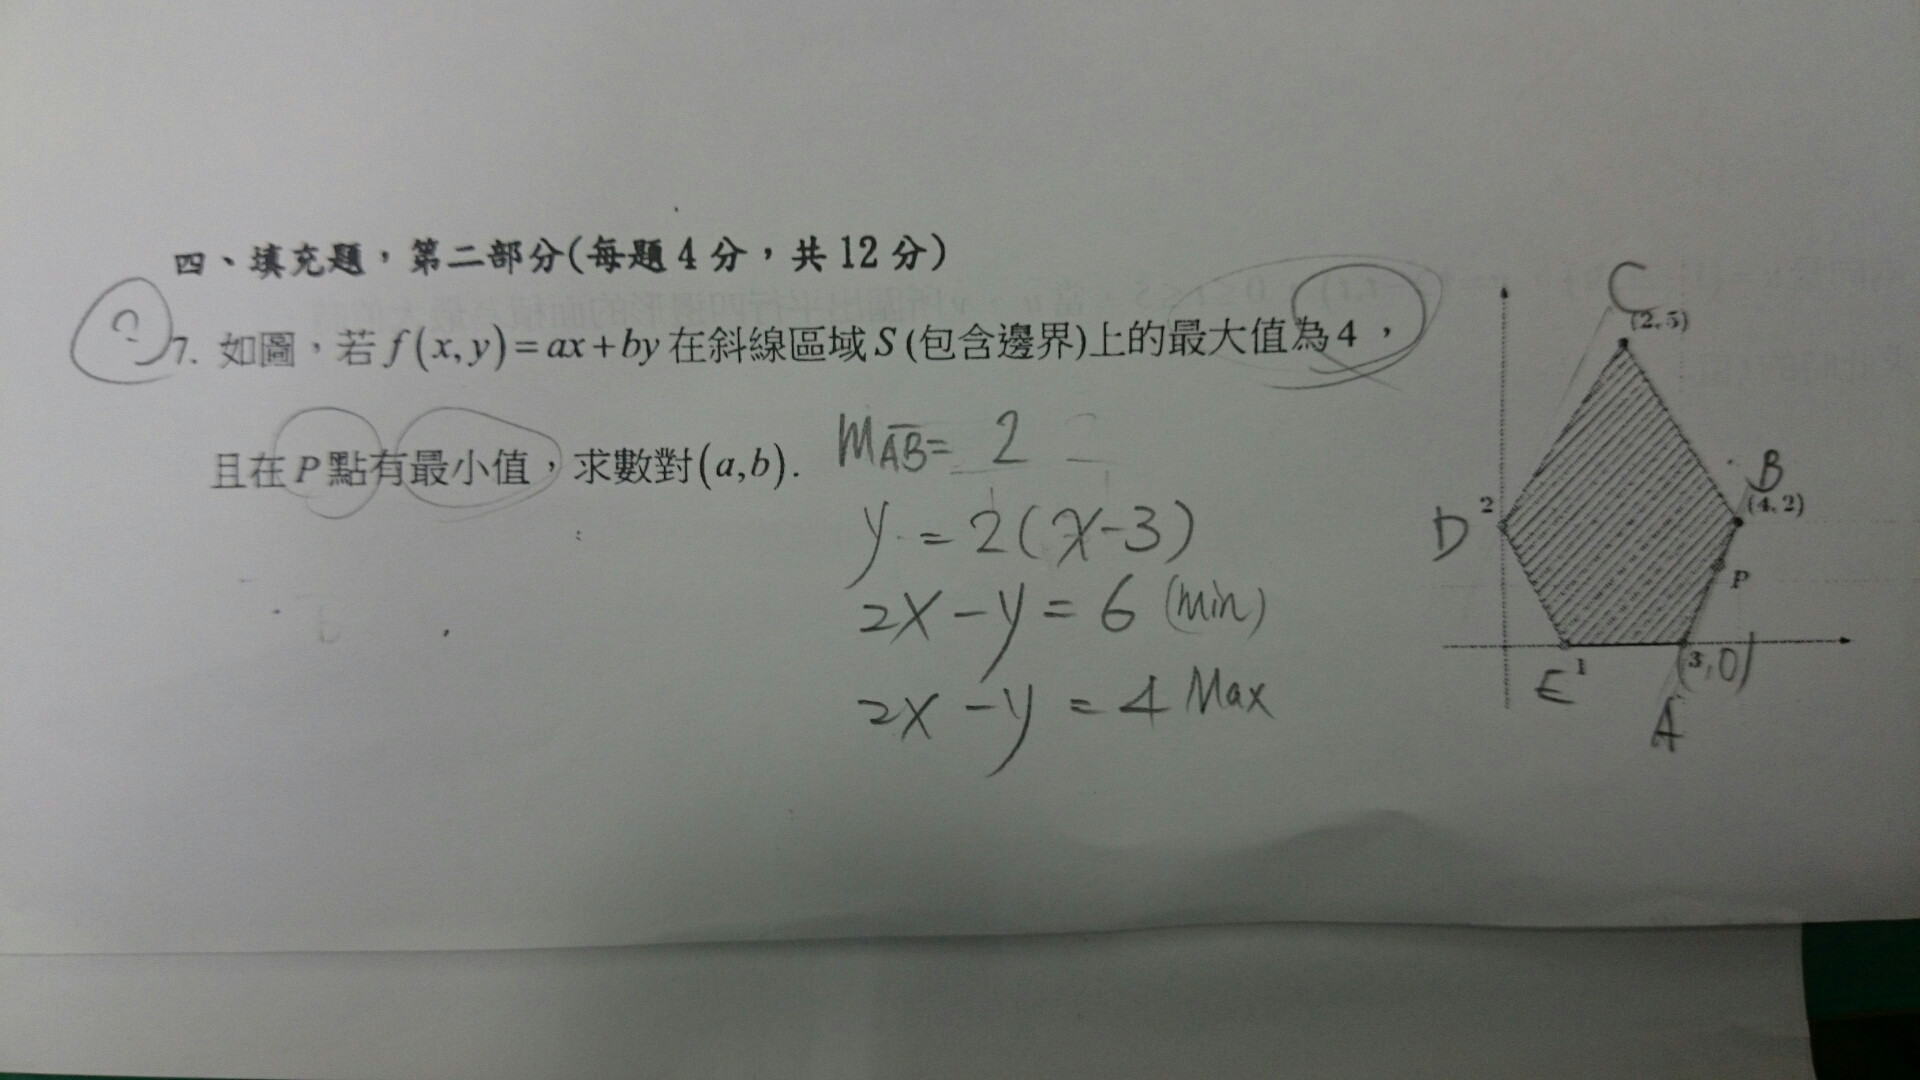 四、填充題，第二部分(每題 4 分，共 12 分)
?
7. 如圖，若 f(x,y)=ax+by 在斜線區域 S (包含邊界)上的最大值為 4，
且在 P 點有最小值，求數對(a,b).
M AB = 2
y = 2(x-3)
2x - y = 6 (min)
2x - y = 4 Max
C
(2,5)
B
(4,2)
D 2
P
E 1
(3,0)
A